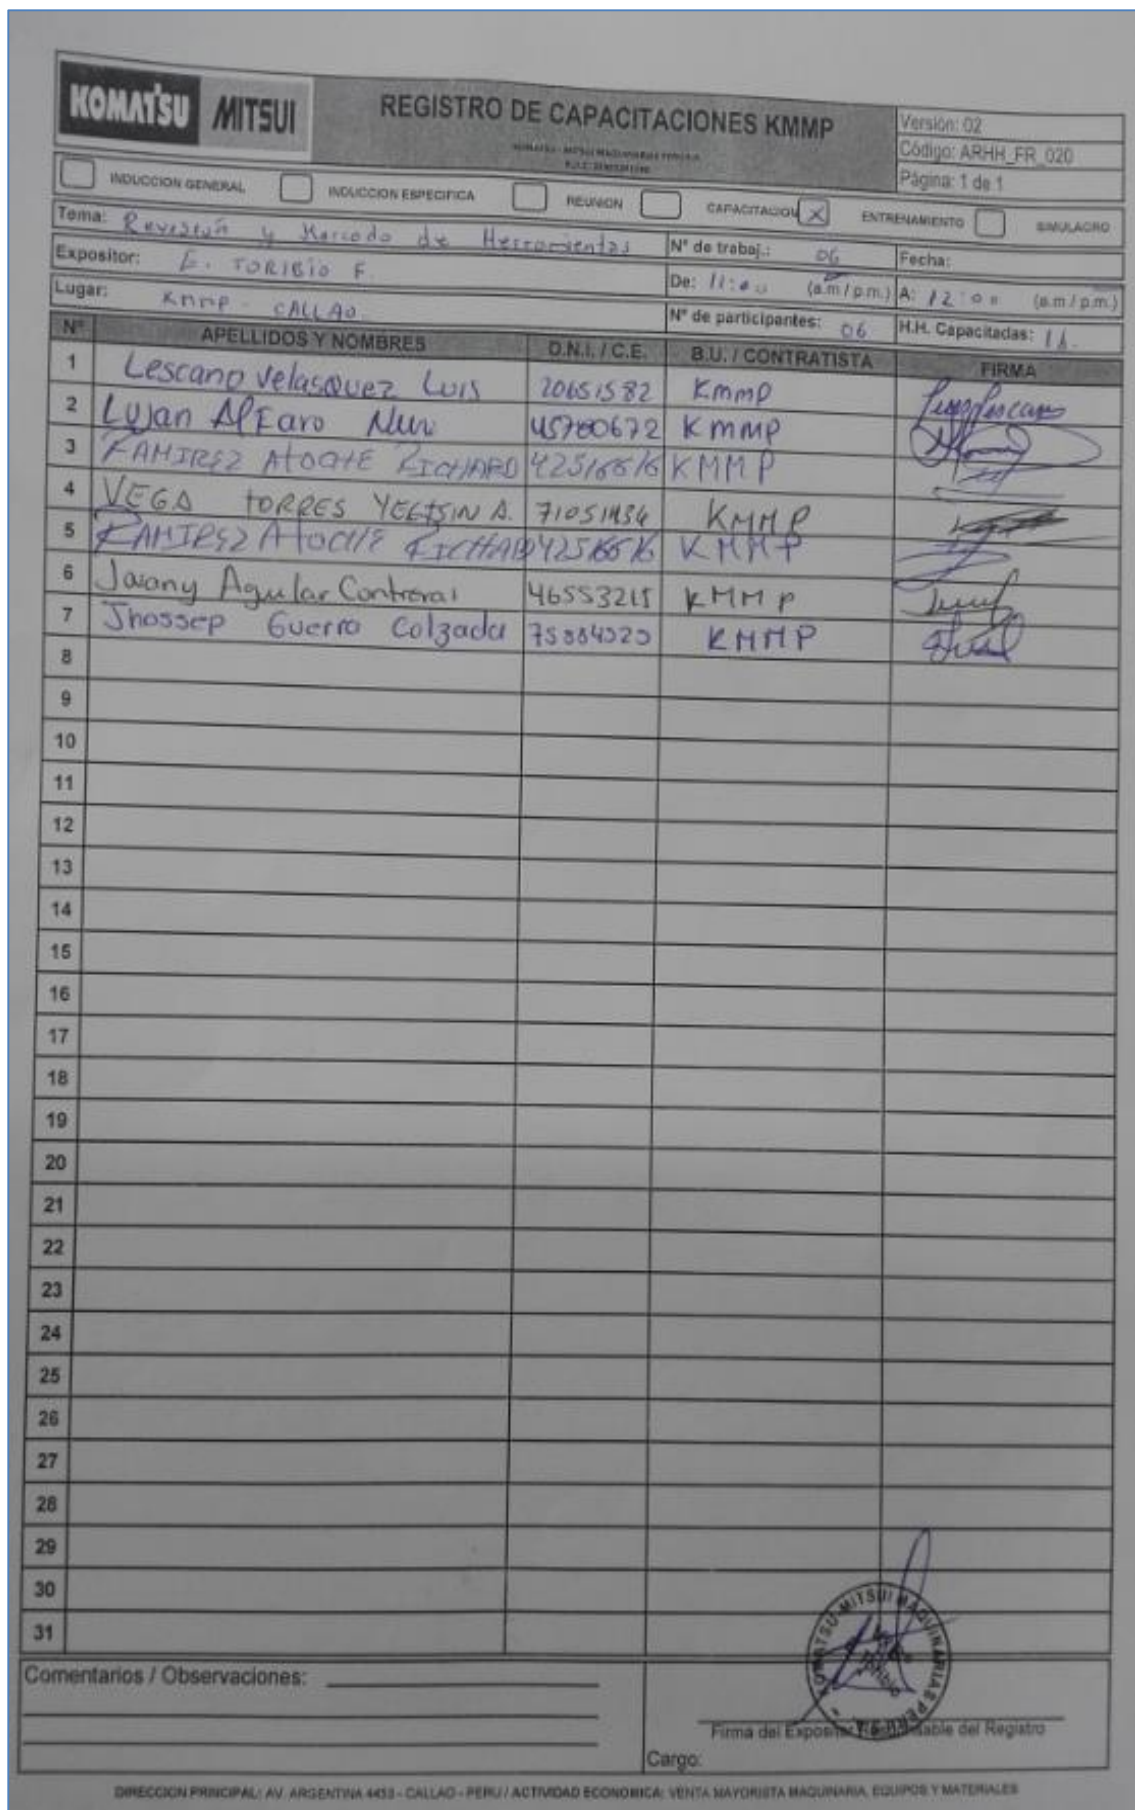 KOMATSU MITSUI
REGISTRO DE CAPACITACIONES KMMP
KOMATSU - MITSUI MAQUINARIAS PERU S.A.
Versión: 02
Código: ARHH_FR_020
Página: 1 de 1
INDUCCION GENERAL INDUCCION ESPECIFICA REUNION CAPACITACION X ENTRENAMIENTO SIMULACRO
Tema: Revisión y Marcado de Herramientas Nº de trabaj.: 06 Fecha:
Expositor: E. TORIBIO F. De: 11:00 (a.m / p.m.) A: 12:00 (a.m / p.m.)
Lugar: KMMP - CALLAO Nº de participantes: 06 H.H. Capacitadas:
Nº APELLIDOS Y NOMBRES D.N.I. / C.E. B.U. / CONTRATISTA FIRMA
1 Lescano Velasquez Luis 20651582 Kmmp
2 Lujan Alfaro 45780672 Kmmp
3 RAMIREZ ATOCHE RICHARD 42516616 KMMP
4 VEGA TORRES YELTSIN A. KMMP
5 RAMIREZ ATOCHE RICHARD KMMP
6 Aguilar Contreras 46553215 KMMP
7 Jhossep Guerra Colzada KMMP
8
9
10
11
12
13
14
15
16
17
18
19
20
21
22
23
24
25
26
27
28
29
30
31
KOMATSU-MITSUI MAQUINARIAS PERU
Toribio
Comentarios / Observaciones:
Firma del Expositor / Responsable del Registro
Cargo:
DIRECCION PRINCIPAL: AV. ARGENTINA 4453 - CALLAO - PERU / ACTIVIDAD ECONOMICA: VENTA MAYORISTA MAQUINARIA, EQUIPOS Y MATERIALES